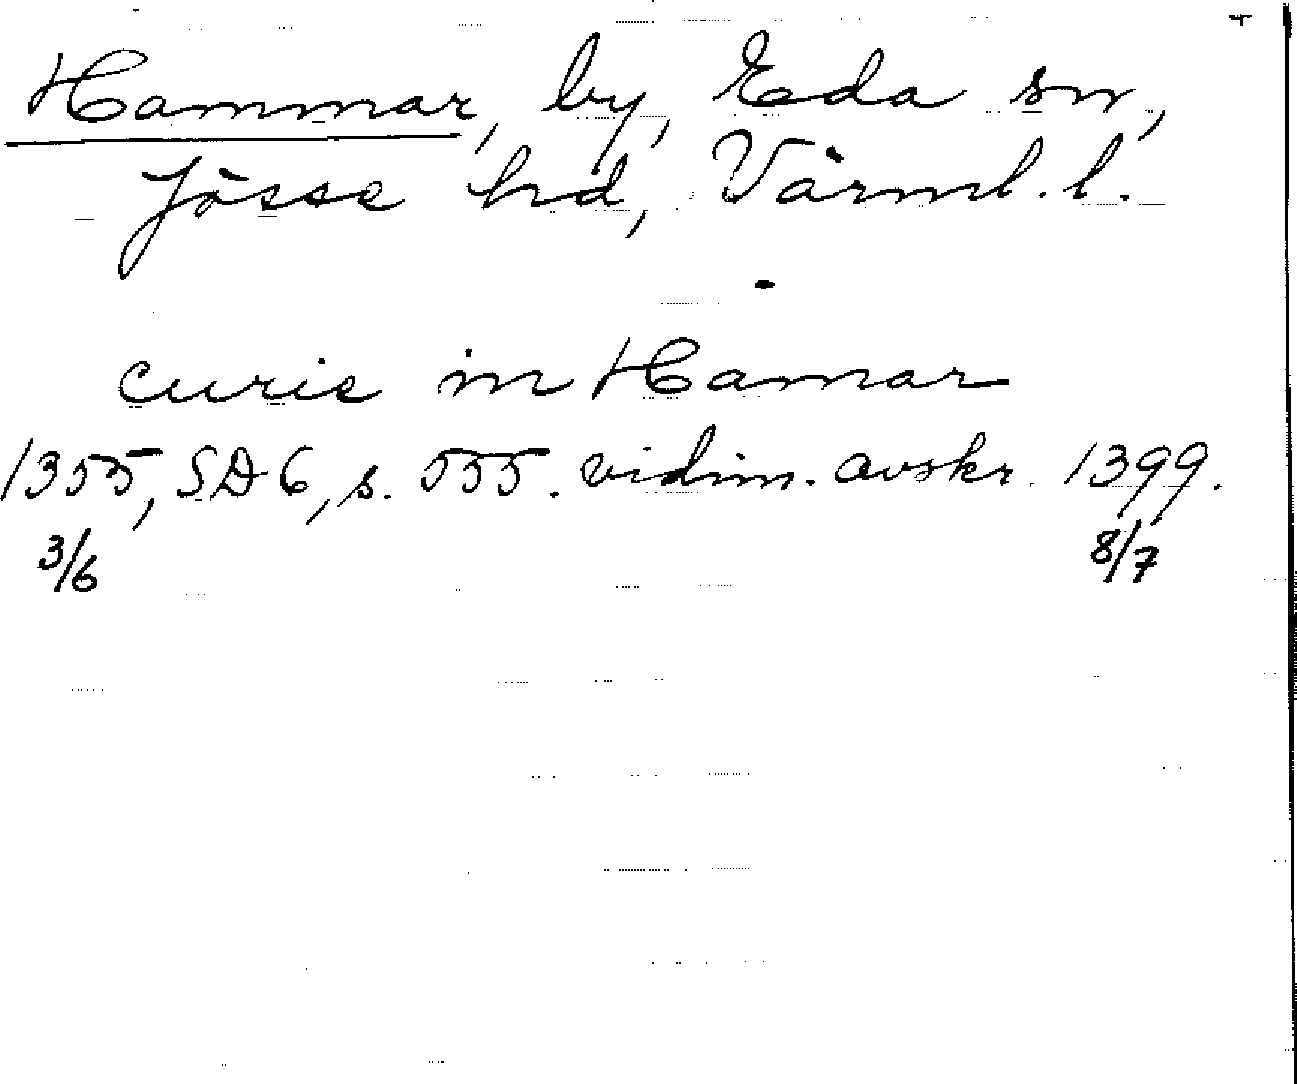 Hammar, by, Eda sn,
Jösse hd, Värml. l.
curie in Hamar
1355, SD 6, s. 555. vidim. avskr. 1399.
3/6 8/7